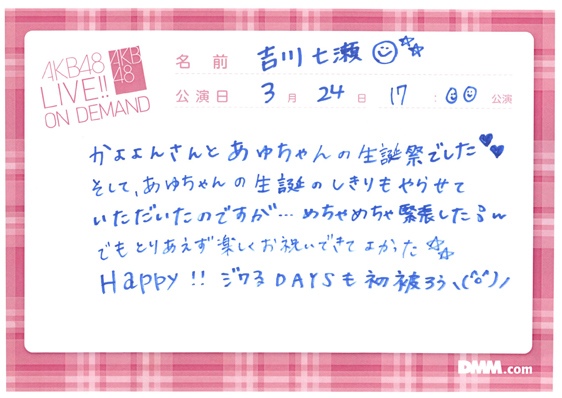 AKB48
LIVE!!
ON DEMAND
AKB
48
名前 吉川七瀬
公演日 3月24日 17:00公演
かよよんさんとあゆちゃんの生誕祭でした
そして、あゆちゃんの生誕のしきりもやらせて
いただいたのですが…めちゃめちゃ緊張した
でもとりあえず楽しくお祝いできてよかった☆☆
Happy!! ジワるDAYSも初披ろう\(^o^)/
DMM.com